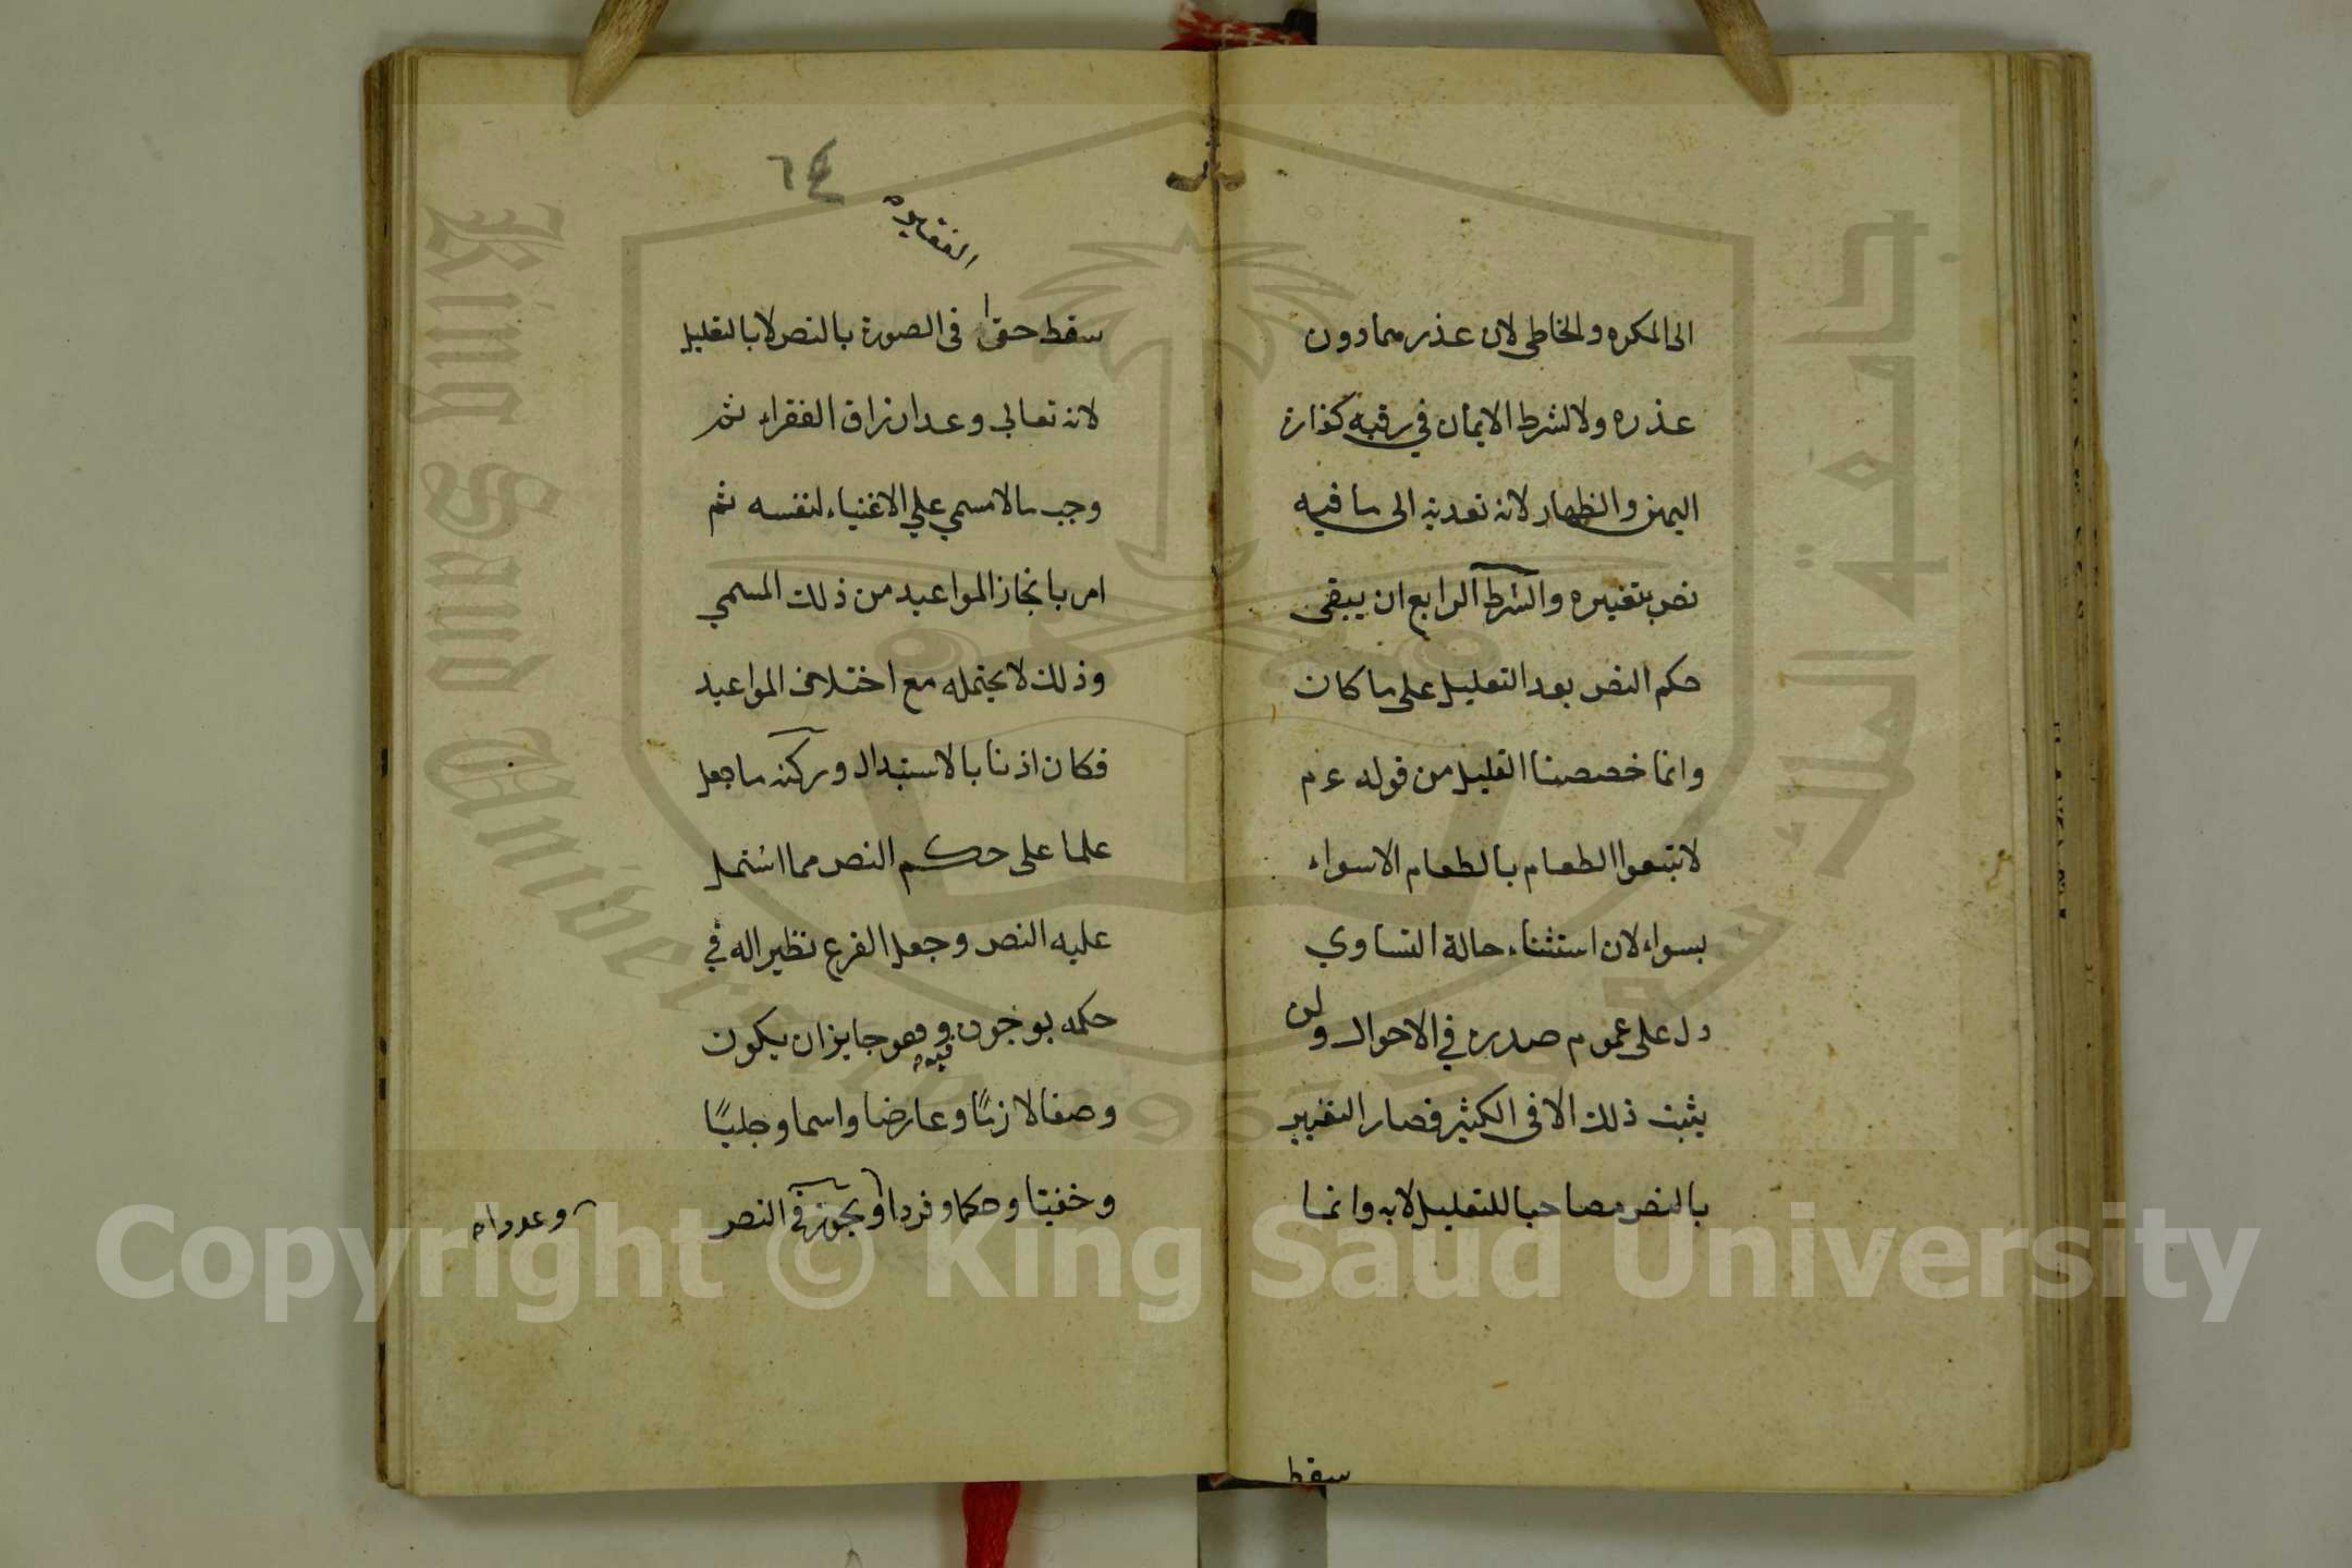 الى المكره والخاطى لان عذرهما دون
عذره ولا لشرط الايمان في رقبة كفارة
اليمين والظهار لانه تعدية الى ما فيه
نص بتغييره والشرط الرابع ان يبقى
حكم النص بعد التعليل على ما كان
وانما خصصنا القليل من قوله عم
لا تبيعوا الطعام بالطعام الا سواء
بسواء لان استثناء حالة التساوي
دل على عموم صدره في الاحوال ولن
يثبت ذلك الا في الكثير فصار التغيير
بالنص مصاحبا للتعليل لا به وانما
سقط
٦٤
سقط حقه في الصورة بالنص لا بالتعليل
لانه تعالي وعد ارزاق الفقراء ثم
وجب مالا مسمي علي الاغنياء لنفسه ثم
امر بانجاز المواعيد من ذلك المسمي
وذلك لا يحتمله مع اختلاف المواعيد
فكان اذنا بالاستبدال وركنه ما جعل
علما على حكم النص مما اشتمل
عليه النص وجعل الفرع نظيرا له في
حكمه بوجوده فيه وهو جايز ان يكون
وصفا لازمًا وعارضا واسما وجليًا
وخفيًا وحكما وفردا ويجوز في النص
وعددا
King Saud University
جامعة الملك سعود
1957
Copyright © King Saud University